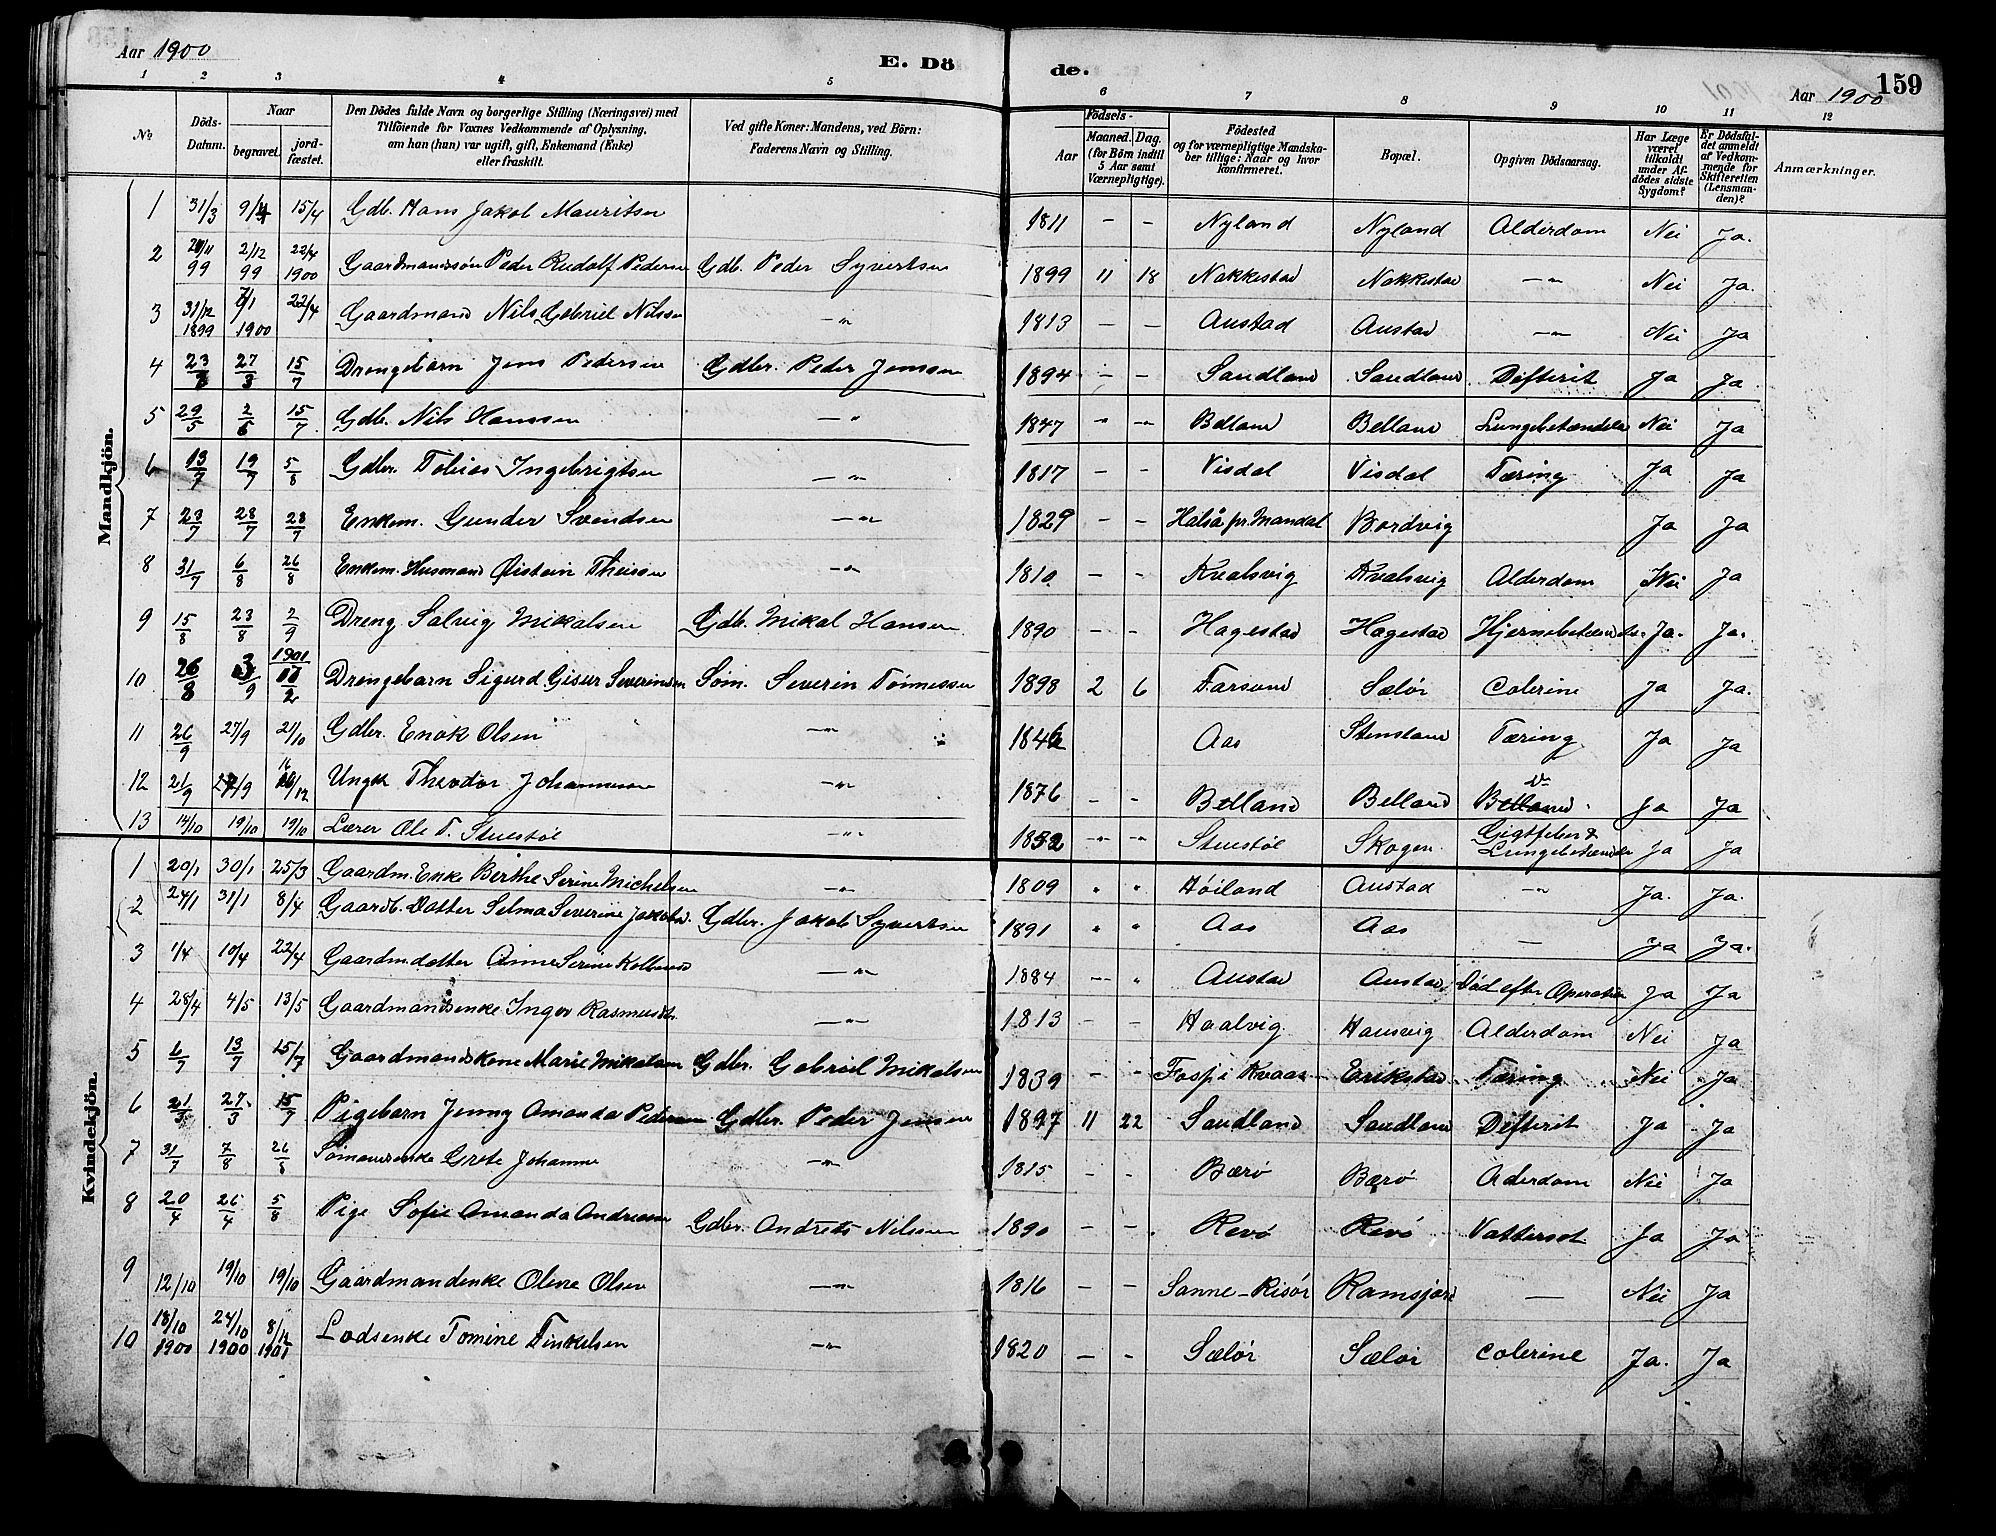 Aar 1900
E. Dö
de.
Aar 1900
159
1 2 3 4 5 6 7 8 9 10 11 12
No
Döds-Datum.
Naar
begravet.
jord-fæstet.
Den Dödes fulde Navn og borgerlige Stilling (Næringsvei) med
Tilföiende for Voxnes Vedkommende af Oplysning,
om han (hun) var ugift, gift, Enkemand (Enke)
eller fraskilt.
Ved gifte Koner: Mandens, ved Börn:
Faderens Navn og Stilling.
Födsels-
Aar
Maaned. Dag.
(for Börn indtil
5 Aar samt
Værnepligtige).
Födested
og for værnepligtige Mandska-
ber tillige: Naar og hvor
konfirmeret.
Bopæl.
Opgiven Dödsaarsag.
Har Læge
været
tilkaldt
under Af-
dödes sidste
Sygdom?
Er Dödsfal-
det anmeldt
af Vedkom-
mende for
Skifteretten
(Lensman-
den)?
Anmærkninger.
Mandkjön.
1 31/3 9/4 15/4 Gdb. Hans Jakob Mauritsen 1811 - - Nyland Nyland Alderdom Nei Ja.
2 99 2/12 99 22/4 1900 Gaardmandssøn Peder Rudolf Pedersen Gdb. Peder Syvertsen 1899 11 18 Nakkestad Nakkestad -"- Nei Ja.
3 31/12 1899 1900 22/4 Gaardmand Nils Gabriel Nilsen -"- 1813 - - Austad Austad -"- Nei Ja
4 27/3 15/7 Drengebarn Jens Pedersen Gdbr. Peder Jensen 1894 - - Sandland Sandland Difterit Ja Ja
5 29/5 2/6 15/7 Gdb. Nils Hanssen -"- 1847 " -"- Belland Belland Lungebetændelse Nei Ja
6 13/7 19/7 5/8 Gdbr. Tobias Ingebrigtsen -"- 1817 - - Visdal Visdal Tæring Ja Ja
7 23/7 28/7 28/7 Enkem. Gunder Svendsen -"- 1829 - - Halså pr. Mandal Bordvig Ja Ja
8 31/7 6/8 26/8 Enkem. Husmand Øistein Theisen -"- 1810 - - Kvalsvig Kvalsvig Alderdom Nei Ja
9 15/8 23/8 2/9 Dreng Salvig Mikalsen Gdb. Mikal Hansen 1890 - - Hagestad Hagestad Ja. Ja.
10 26/8 3/9 1901 17/2 Drengebarn Sigurd Gisur Severinsen Søm. Severin Tønnessen 1898 2 6 Farsund Sælør Colerine Ja Ja.
11 26/9 27/9 21/10 Gdbr. Enok Olsen -"- Aas Stensland Tæring Ja Ja
12 21/9 16/12 Ungk. Theodor Johannesen -"- 1876 - - Belland Belland Ja Ja
13 14/10 19/10 19/10 Lærer Ole T. Stuestøl -"- 1852 -"- -"- Stuestøl Skogen Gigtfeber & Lungebetændelse Ja Ja
Kvindekjön.
1 20/1 30/1 25/3 Gaardm. Enke Birthe Serine Michelsen -"- 1809 " " Høiland Austad -"- Ja. Ja.
2 24/1 31/1 8/4 Gaardb. Datter Selma Severine Jakobsd. Gdbr. Jakob Syvertsen 1891 " " Aas Aas - Ja Ja.
3 1/4 10/4 22/4 Gaardmdatter Anne Serine -"- 1884 -"- " Austad Austad Død efter Operation Ja Ja
4 28/4 4/5 13/5 Gaardmandsenke Inger Rasmusdtr. -"- 1813 - - Haalvig Hausvig Alderdom Nei Ja
5 6/7 13/7 15/7 Gaardmandskone Marie Mikalsen Gdbr. Gabriel Mikalsen 1839 - - Foss i Kvaas Erikstad Tæring Nei Ja
6 21/3 27/3 15/7 Pigebarn Jenny Amanda Pedersen Gdbr. Peder Jensen 1897 11 22 Sandland Sandland Difterit Ja Ja
7 31/7 7/8 26/8 Sømandsenke Grete Johanne -"- 1815 - - Bærø Bærø Alderdom Nei Ja
8 20/4 26/4 5/8 Pige Sofie Amanda Andreasen Gdbr. Andreas Nilssen 1890 - - Revø Revø Vattersot Ja Ja
9 12/10 19/10 19/10 Gaardmandenke Olene Olsen -"- 1816 - - Sanne-Risør Ramsjord - Nei Ja
10 18/10 1900 24/10 1900 8/12 Lodsenke Tomine Tinkelsen -"- 1820 - - Sælør Sælør Colerine Ja. Ja